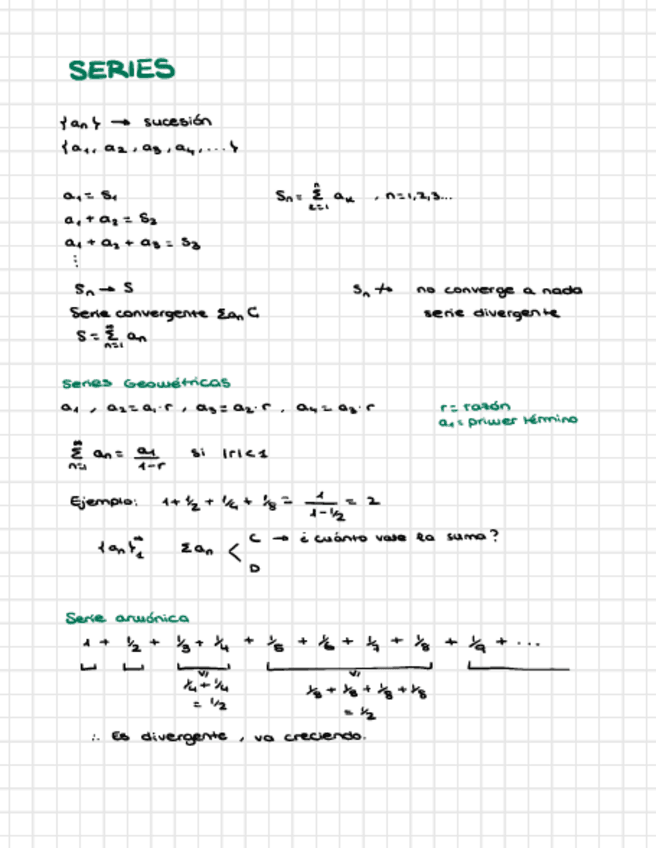 SERIES
{an} → sucesión
{a1, a2, a3, a4, ...}
a1 = S1
Sn = Σ ak , n=1,2,3...
a1 + a2 = S2
a1 + a2 + a3 = S3
⋮
Sn → S
Sn ↛ no converge a nada
Serie convergente Σan C
serie divergente
S = Σ_{n=1}^{∞} an
Series Geométricas
a1 , a2 = a1·r , a3 = a2·r , a4 = a3·r
r = razón
a1 = primer término
Σ_{n=1}^{∞} an = a1/(1-r) si |r|<1
Ejemplo: 1 + 1/2 + 1/4 + 1/8 = 1/(1-1/2) = 2
{an}_1^∞ Σan < C → ¿cuánto vale la suma?
D
Serie armónica
1 + 1/2 + 1/3 + 1/4 + 1/5 + 1/6 + 1/7 + 1/8 + 1/9 + ...
1/4 + 1/4
1/8 + 1/8 + 1/8 + 1/8
= 1/2
= 1/2
∴ Es divergente , va creciendo.